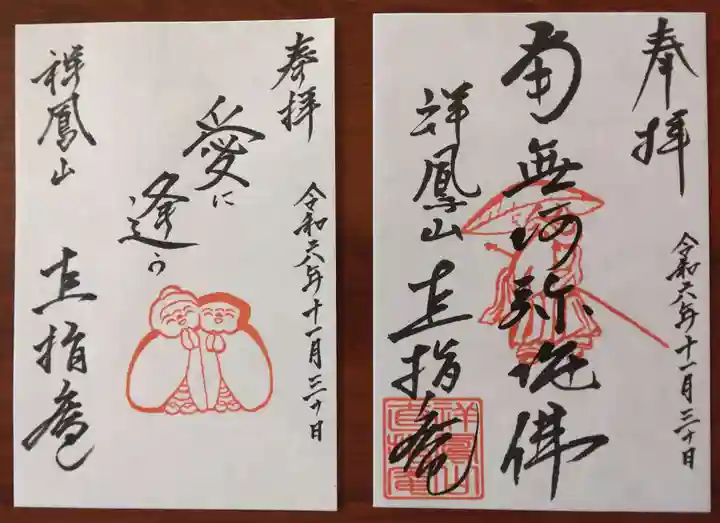 奉拝
令和六年十一月三十日
愛に
逢う
祥鳳山
直指庵
奉拝
令和六年十一月三十日
南無阿弥陀佛
祥鳳山
直指庵
祥鳳山
直指庵